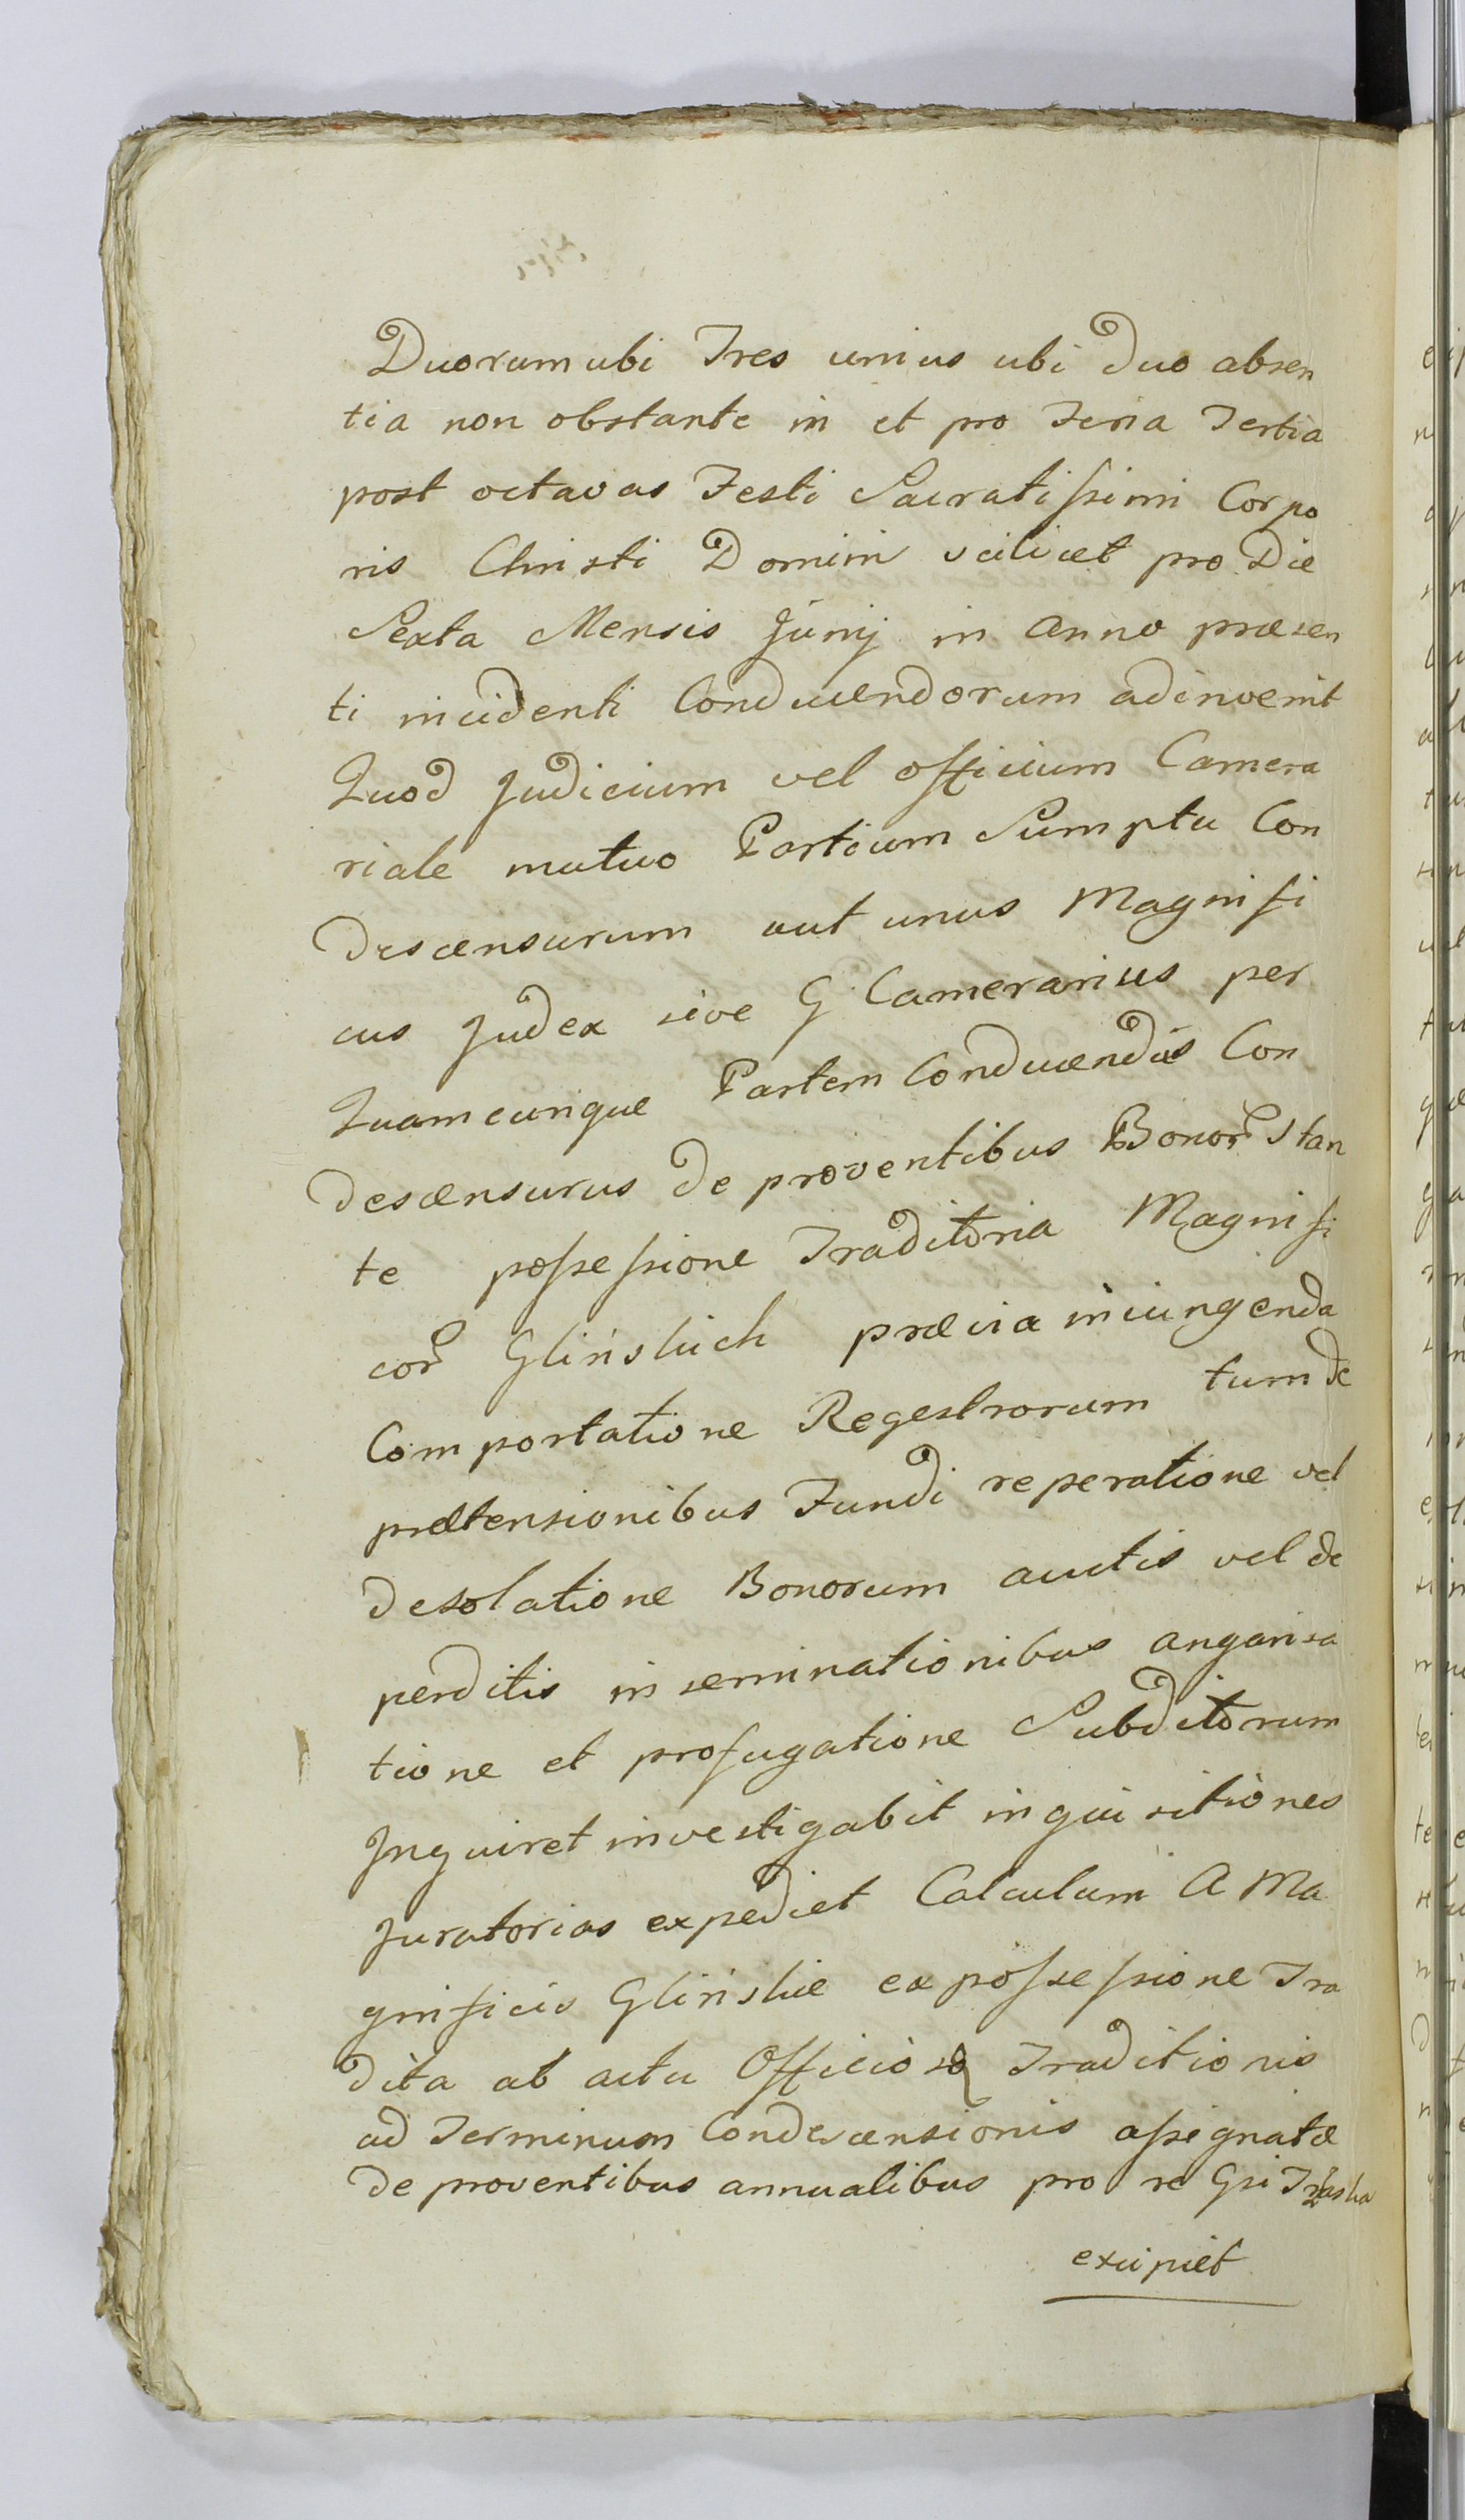 Duorum ubi Tres unius ubi Duo absen
tia non obstante in et pro Feria Tertia
post octavas Festi Sacratissimi Corpo
ris Christi Domini scilicet pro Die
Sexta Mensis Junij in Anno præsen
ti incidenti Conducendorum adinvenit
Quod Judicium vel officium Camera
riale mutuo Partium Sumptu Con
descensurum aut unus Magnifi
cus Judex sive G Camerarius per
Quamcunque Partem Conducendus Con
descensurus de proventibus Bonor Stan
te possessione Traditoria Magnifi
cor Glińskich prævia iniungenda
Comportatione Regestrorum tum de
prætensionibus Fundi reperatione vel
desolatione Bonorum auctis vel de
perditis inseminationibus angarisa
tione et profugatione Subditorum
Inquiret investigabit inquisitiones
Juratorias expediet Calculum A Ma
gnificis Glińskie ex possessione Tra
dita ab actu Officios Traditionis
ad Terminum Condescensionis assignatæ
de proventibus annualibus pro re Gsi
excipiet